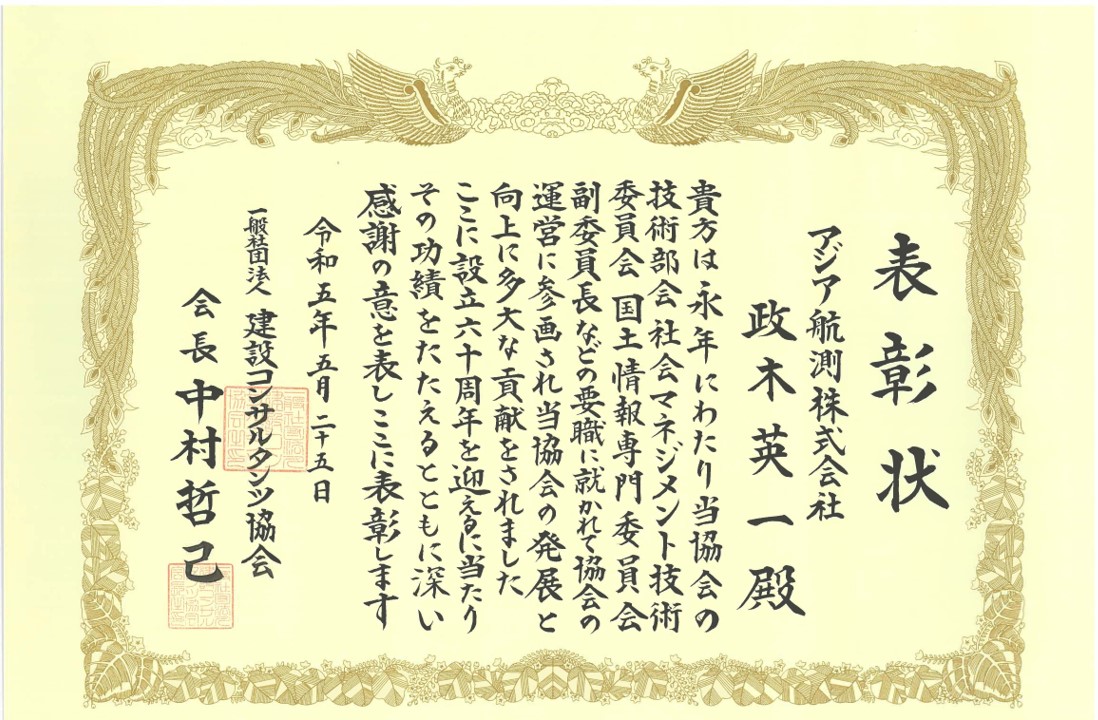 表彰状
アジア航測株式会社
政木英一殿
貴方は永年にわたり当協会の
技術部会社会マネジメント技術
委員会国土情報専門委員会
副委員長などの要職に就かれて協会の
運営に参画され当協会の発展と
向上に多大な貢献をされました
ここに設立六十周年を迎えるに当たり
その功績をたたえるとともに深い
感謝の意を表しここに表彰します
令和五年五月二十五日
一般社団法人 建設コンサルタンツ協会
会長 中村哲己